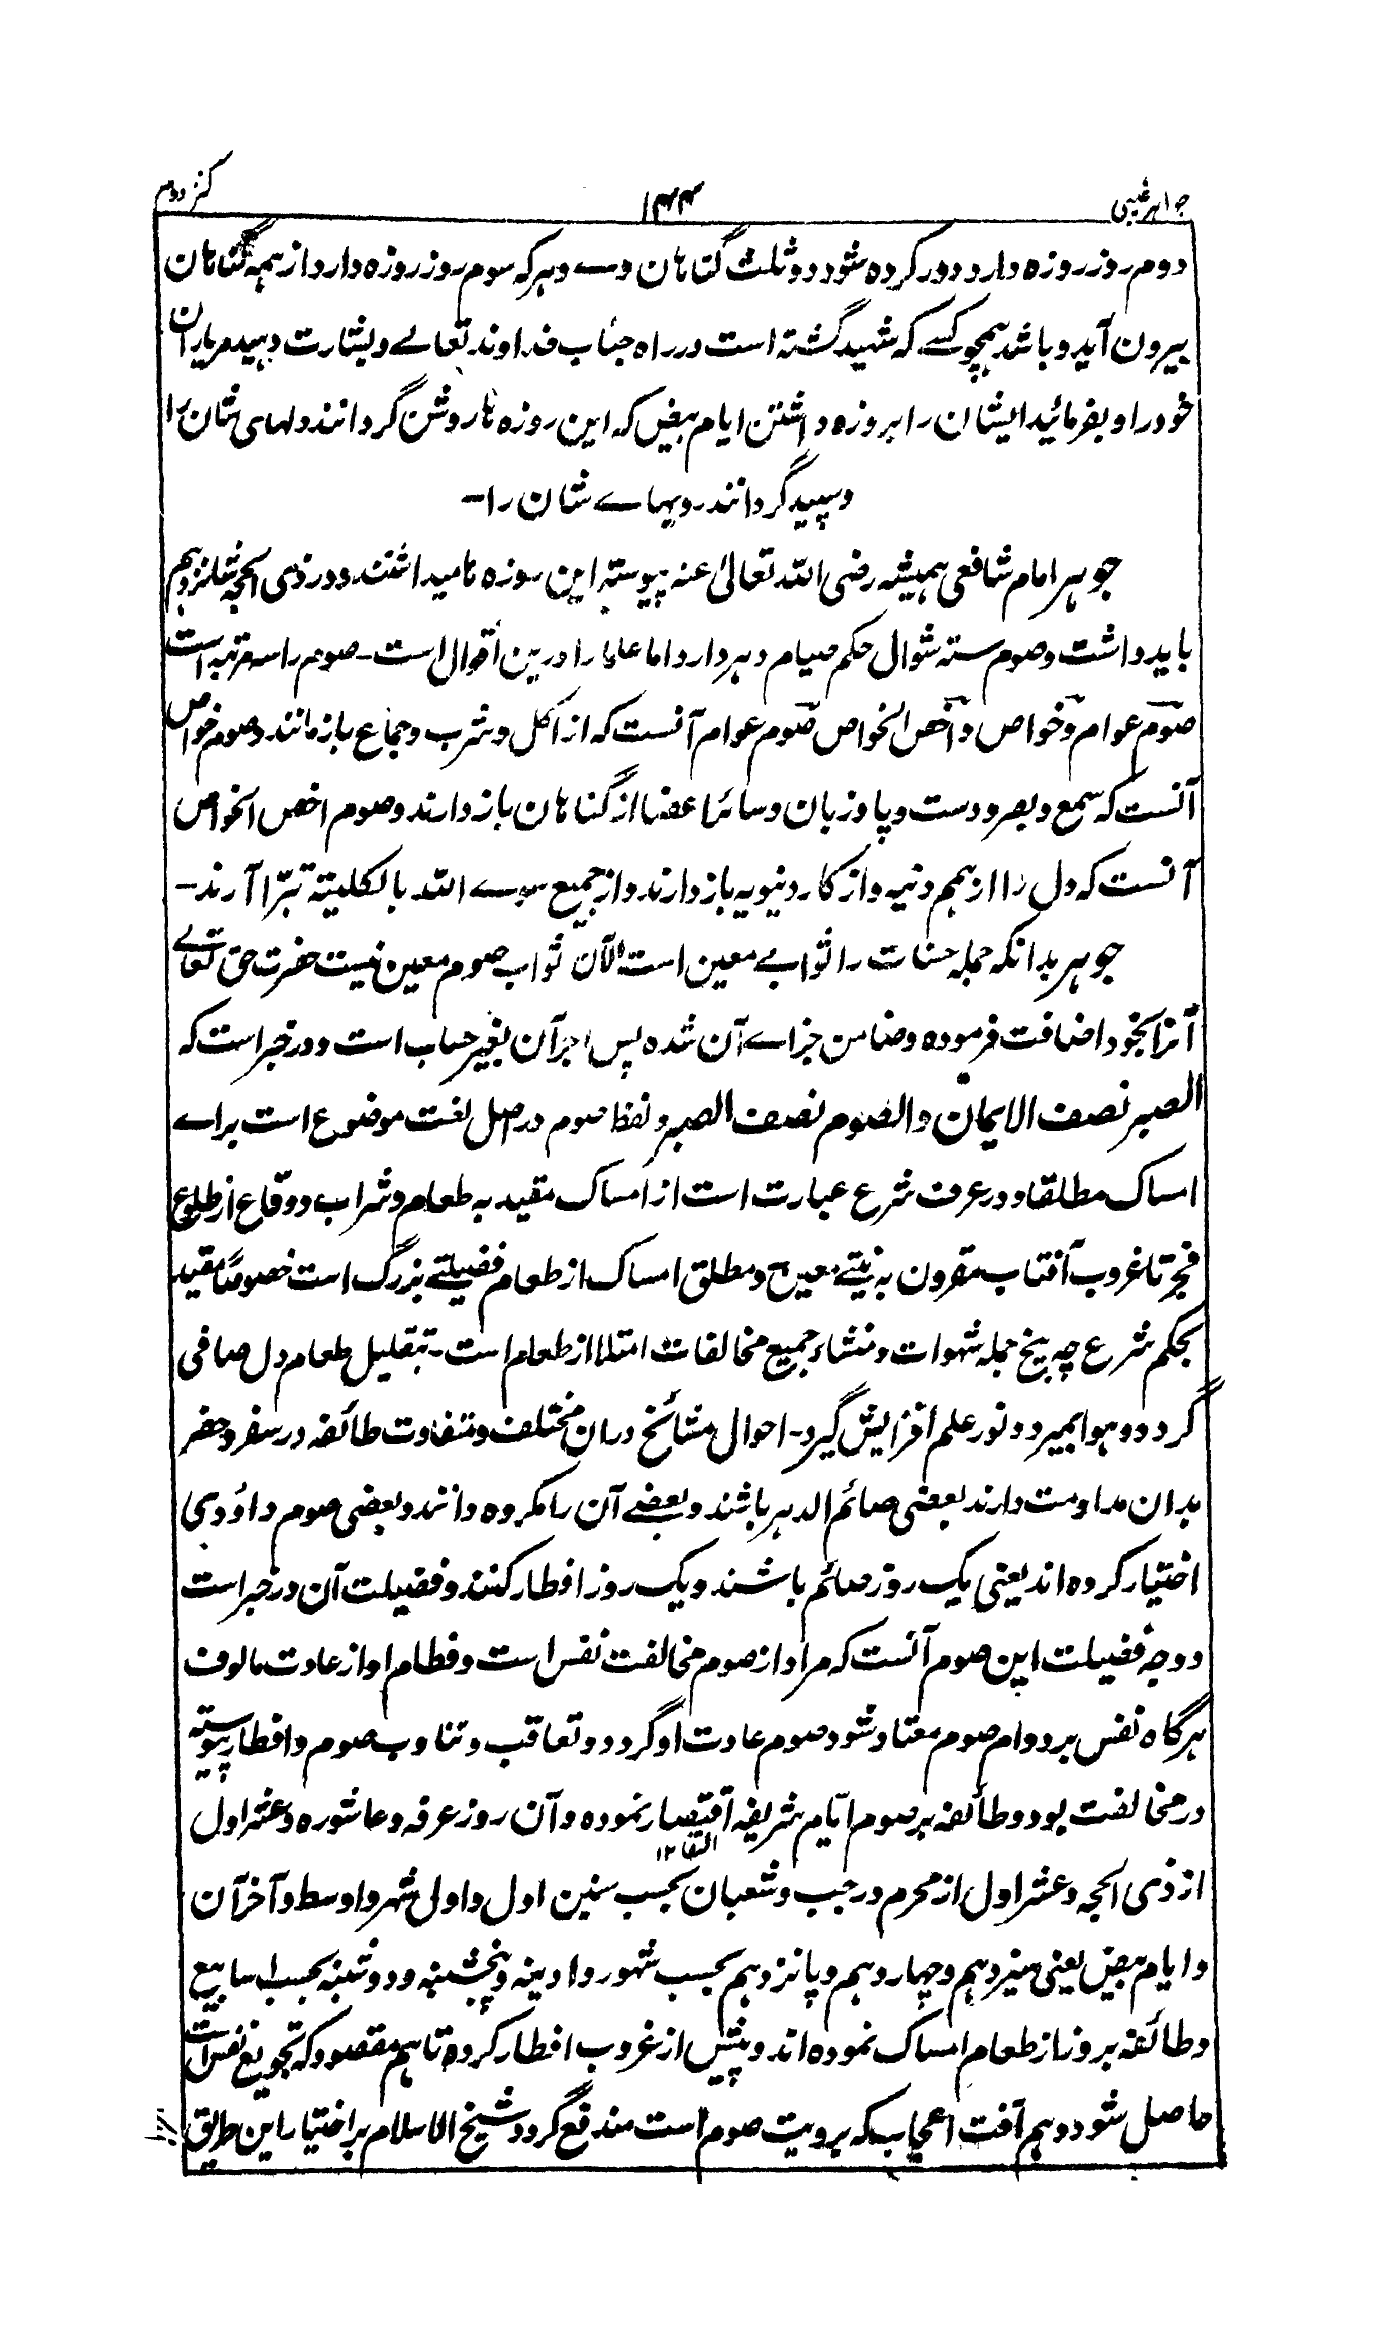 جواهر غیبی ۱۴۴ کنز دوم
دوم روز روزه دارد دور کرده شود دو ثلث گناهان وے و هر که سوم روز روزه دارد از همه گناهان
بیرون آید و باشد همچو کسے که شهید گشته است در راه جناب خداوند تعالے و بشارت دهید مریاران
خود را و بفرمائید ایشان را بروزه داشتن ایام بیض که این روزه ها روشن گردانند دلهای شان را
و سپید گردانند رویهاے شان را-
جوهر امام شافعی همیشه رضی الله تعالی عنه پیوسته این روزه ها میداشتند و در ذی الحجه شانزدهم
باید داشت و صوم سته شوال حکم صیام دهر دارد اما علما را درین اقوال است- صوم را سه مرتبه است
صوم عوام و خواص و اخص الخواص صوم عوام آنست که از اکل و شرب و جماع باز مانند و صوم خواص
آنست که سمع و بصر و دست و پا و زبان و سائر اعضا از گناهان باز دارند و صوم اخص الخواص
آنست که دل را از همم دنیه و از کار دنیویه باز دارند و از جمیع سوے الله بالکلیته تبرا آرند-
جوهر بدانکه جمله حسنات را ثوابے معین است الآن ثواب صوم معین نیست حضرت حق تعالے
آنرا بخود اضافت فرموده و ضامن جزاے آن شده پس اجر آن بغیر حساب است و در خبر است که
الصبر نصف الایمان والصوم نصف الصبر و لفظ صوم در اصل لغت موضوع است براے
امساک مطلقا و در عرف شرع عبارت است از امساک مقید به طعام و شراب و وقاع از طلوع
فجر تا غروب آفتاب مقرون به نیتے معین و مطلق امساک از طعام فضیلتے بزرگ است خصوصاً مقید
بحکم شرع چه بیخ جمله شهوات و منشاء جمیع مخالفات امتلا از طعام است- بتقلیل طعام دل صافی
گردد و هوا بمیرد و نور علم افزایش گیرد- احوال مشائخ دران مختلف و متفاوت طائفه در سفر و حضر
بدان مداومت دارند بعضی صائم الدهر باشند و بعضے آن را مکروه دانند و بعضی صوم داؤدی
اختیار کرده اند یعنی یک روز صائم باشند و یک روز افطار کنند و فضیلت آن در خبر است
و وجه فضیلت این صوم آنست که مراد از صوم مخالفت نفس است و فطام او از عادت مالوف
هرگاه نفس بر دوام صوم معتاد شود صوم عادت او گردد و تعاقب و تناوب صوم و افطار پیوسته
در مخالفت بود و طائفه بر صوم ایام شریفه اقتصار نموده و آن روز عرفه و عاشوره و عشر اول
از ذی الحجه و عشر اول از محرم و رجب و شعبان بحسب سنین اول و اول شهر و اوسط و آخر آن
و ایام بیض یعنی سیزدهم و چهاردهم و پانزدهم بحسب شهور و ادینه و پنجشنبه و دوشنبه بحسب اسابیع
و طائفه بروز از طعام امساک نموده اند و پیش از غروب افطار کرده تا هم مقصود که تجویع نفس است
حاصل شود و هم آفت اعجاب که برویت صوم است مندفع گردد شیخ الاسلام بر اختیار این طریق